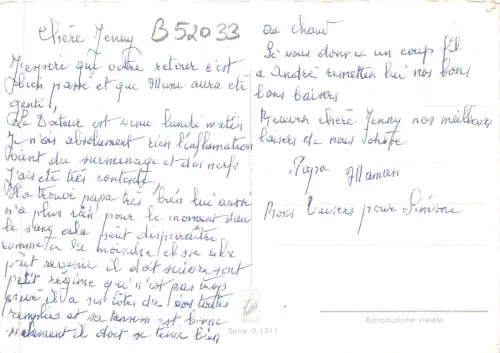 Chère Jenny B52033
J'espère que votre retour s'est
bien passé et que Mme aura été
gentil,
Le Docteur est venu lundi matin
Je n'ai absolument rien l'inflamation
vient du surmenage et des nerfs
J'ais été très contente,
Il a trouvé papa très bien lui aussi
n'a plus rien pour le moment dans
le sang cela peut disparaître
comme la moindre chose
peut revenir il doit suivre son
petit régime qu'n'est pas trop
il a les côtes du dos toutes
remplies et sa tension est bonne
seulement il doit se tenir bien
au chaud
Si vous donnez un coup fil
a André remettez lui nos bons
bons baisers
Recevez chère Jenny nos meilleurs
baisers de nous
Papa Maman
Bons baisers pour Simone
Serie D.1911
Riproduzione vietata